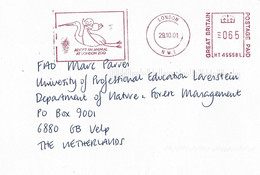 ADOPT AN ANIMAL
AT LONDON ZOO
LONDON
29.10.01
N.W.1
GREAT BRITAIN
POSTAGE PAID
£065
FAO Marc Parren
University of Professional Education Larenstein
Department of Nature & Forest Management
PO Box 9001
6880 GB Velp
THE NETHERLANDS